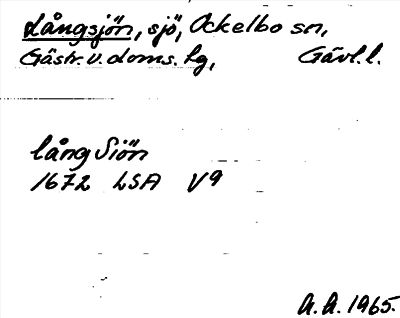 Långsjön, sjö, Ockelbo sn,
Gästr. v. doms. lg, Gävl. l.
lång Siön
1672 LSA V9
A. A. 1965.